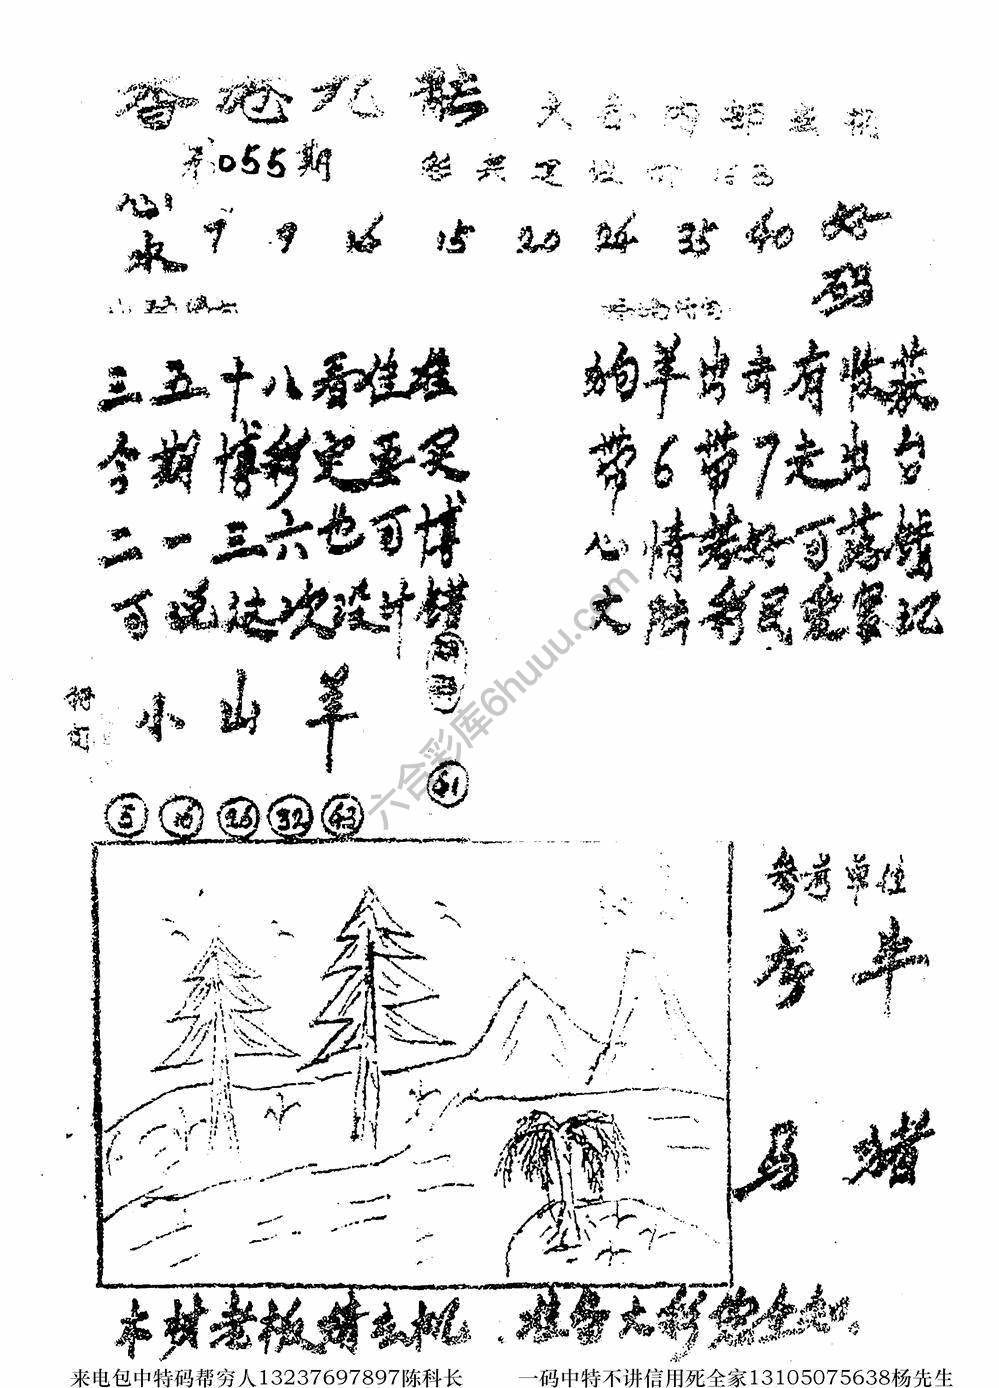 香港九龙
第055期
心水 7 9 16 15 20 24 35 40 好码
三五十八看准准
今期博彩更要买
二一三六也可博
可说这次没有错
狗羊出击有收获
带6带7走出台
心情若好可落错
大陆彩民爱家记
小山羊
41
5 16 26 32 43
参考单位
龙 牛
马 猪
木材老板请玄机
准备大彩您全知
六合彩库6huuu.com
来电包中特码帮穷人13237697897陈科长
一码中特不讲信用死全家13105075638杨先生